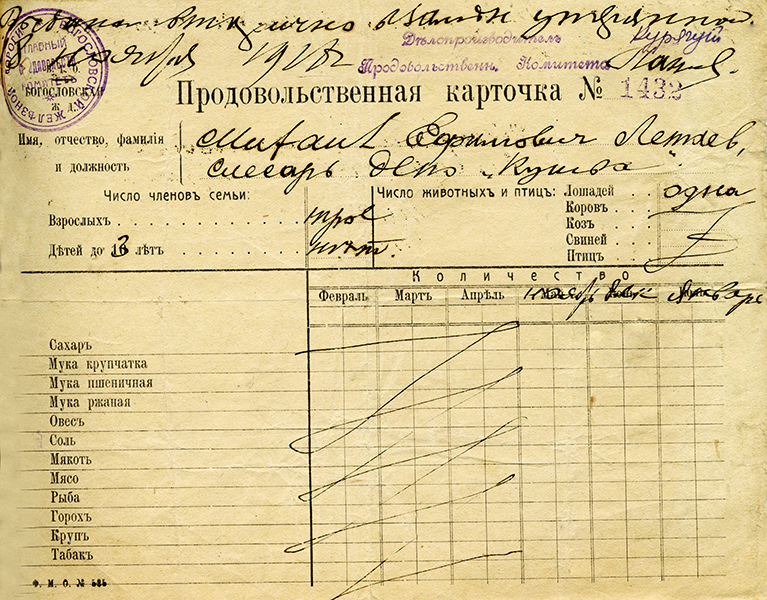 Выдана вторично взамен утерянной
1 Ноября 1918 г.
Дѣлопроизводитель
Продовольственн. Комитета
БОГОСЛОВСКОЙ ЖЕЛѢЗНОЙ
ГЛАВНЫЙ
БОГОСЛОВСКАЯ
Ж. Д.
Продовольственная карточка № 1432
Имя, отчество, фамилія
и должность
Михаил Ефимович Летаев,
слесарь депо "Кушва"
Число членовъ семьи:
Взрослыхъ трое
Дѣтей до 13 лѣтъ
Число животныхъ и птицъ:
Лошадей одна
Коровъ
Козъ
Свиней
Птицъ
Количество
Февраль Мартъ Апрѣль ноябрь Дек Январь
Сахаръ
Мука крупчатка
Мука пшеничная
Мука ржаная
Овесъ
Соль
Мякоть
Мясо
Рыба
Горохъ
Крупъ
Табакъ
Ф. М. О. № 585